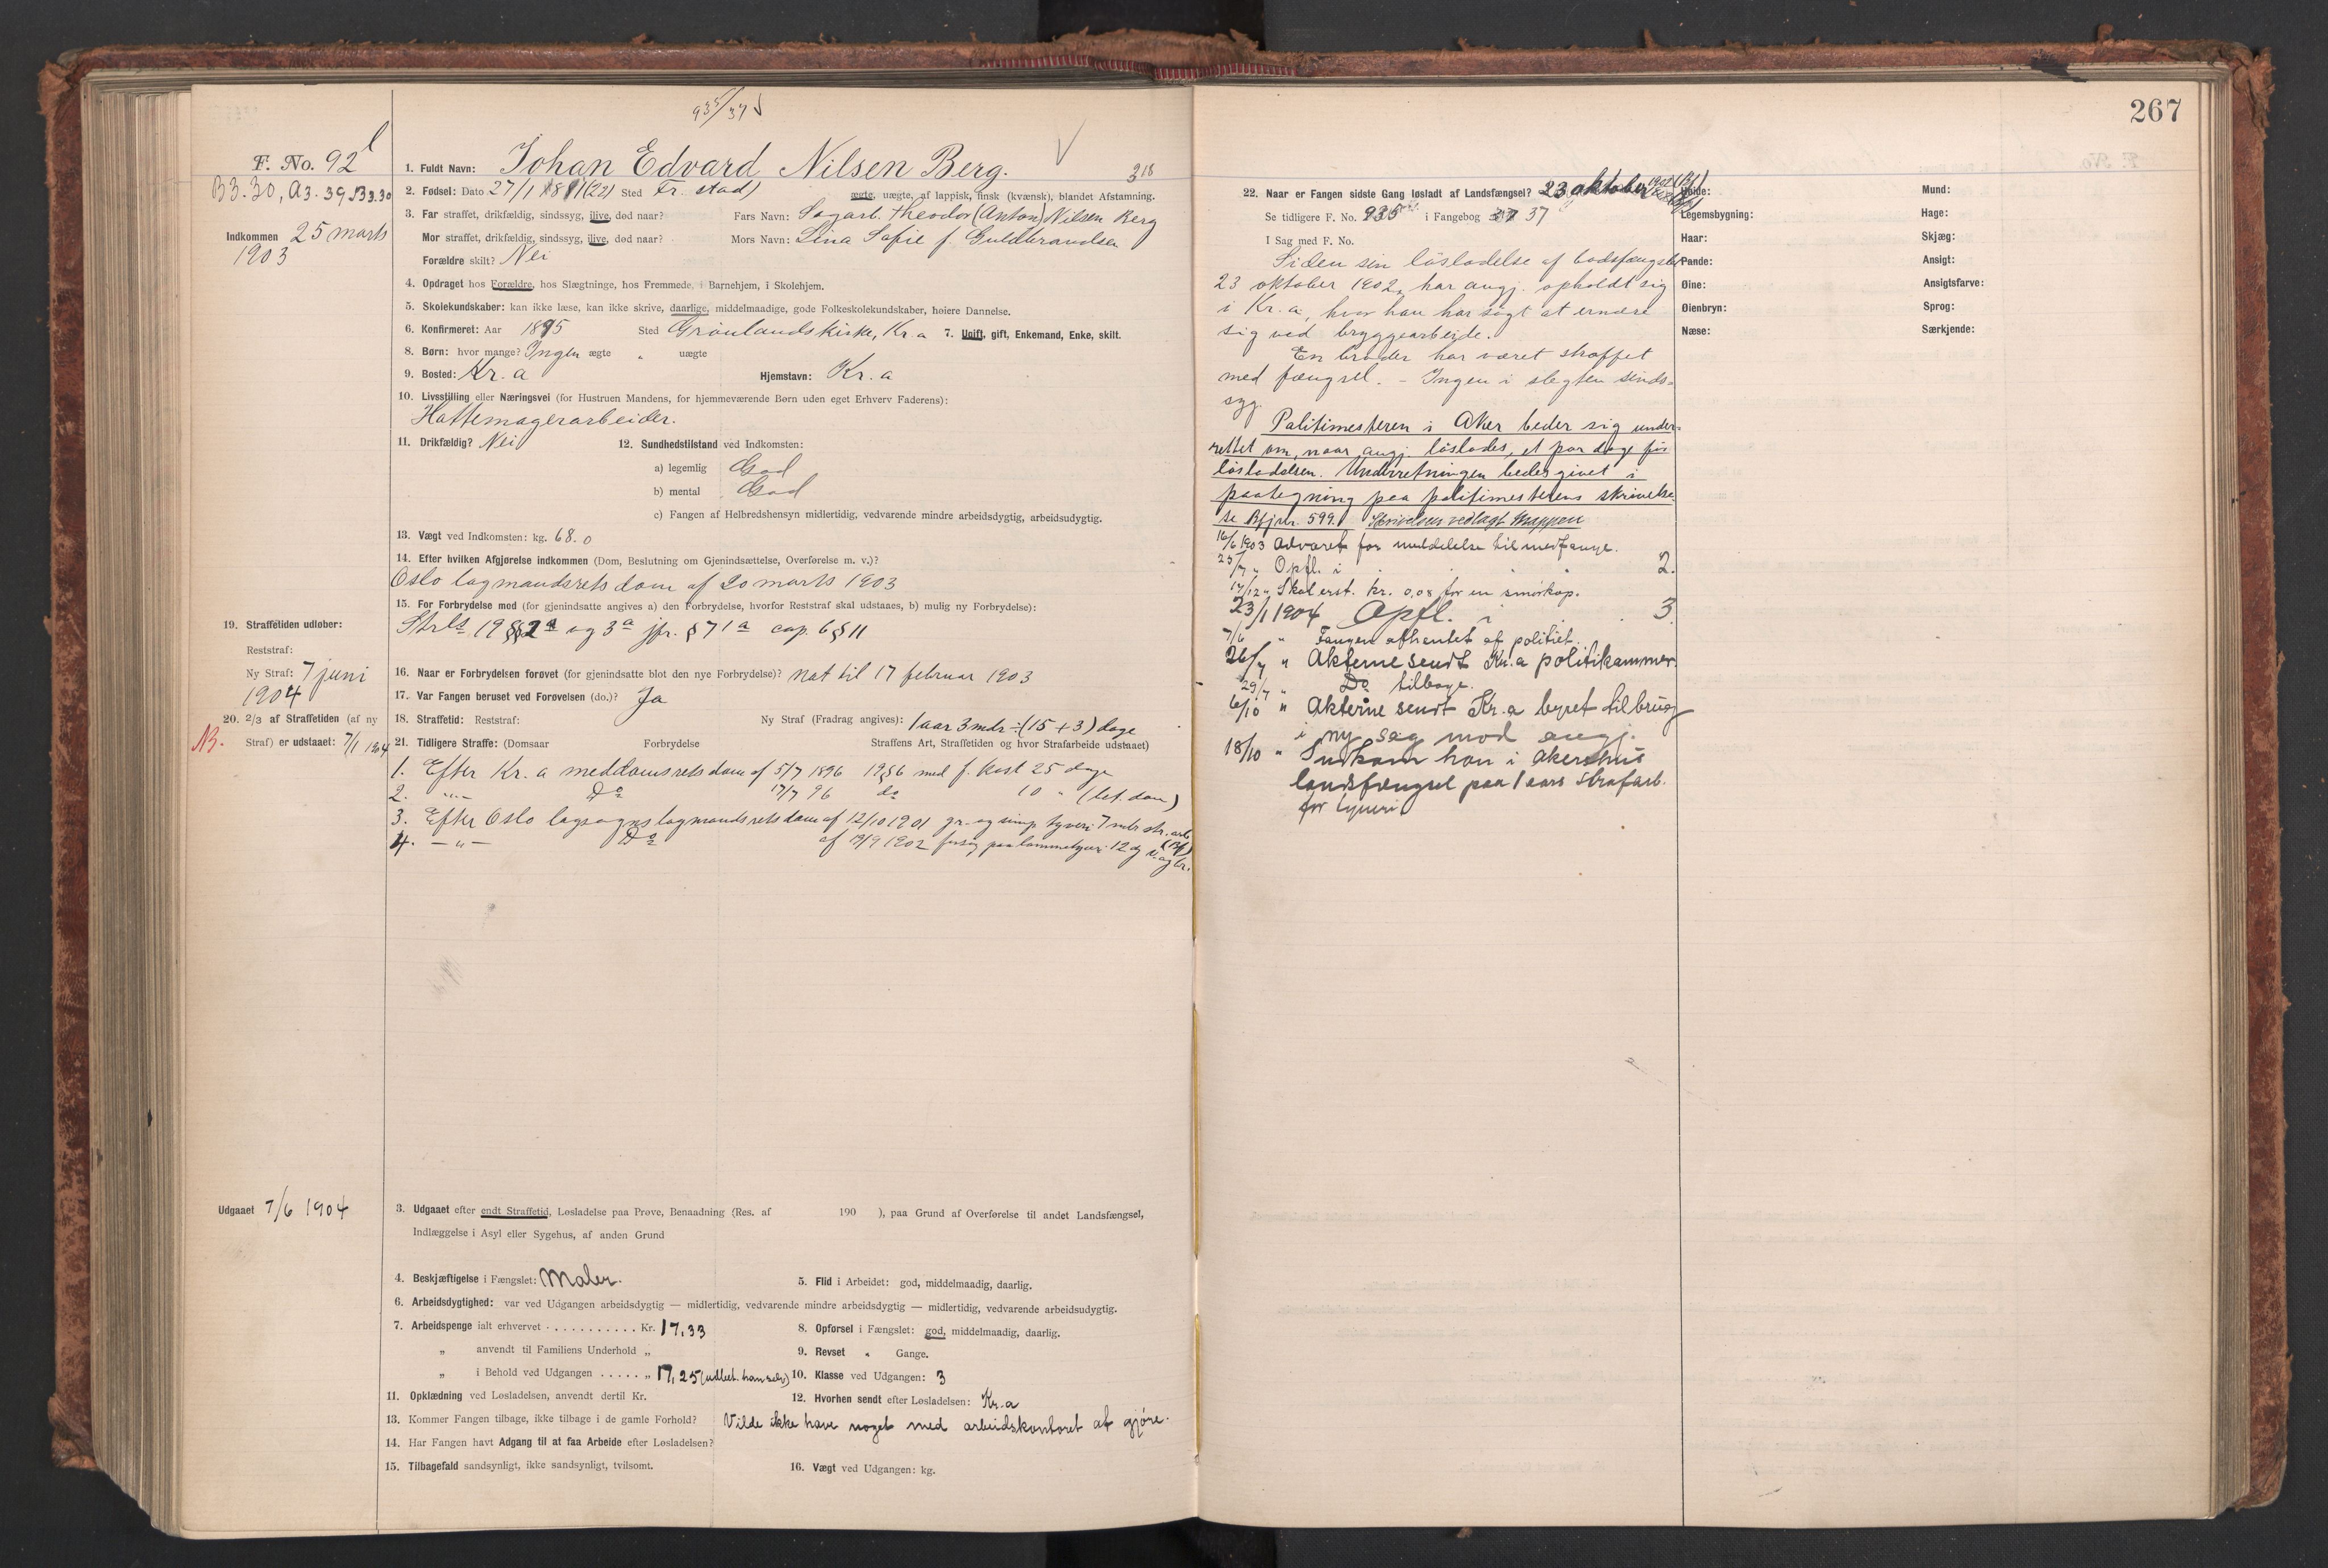 935/37
F. No. 92
B3.30, A3.39, B3.30
Indkommen 25 marts
1903
1. Fuldt Navn: Johan Edvard Nilsen Berg.
2. Fødsel: Dato 27/1 1881 (22) Sted Fr. stad)
ægte, uægte, af lappisk, finsk (kvænsk), blandet Afstamning.
3. Far straffet, drikfældig, sindssyg, ilive, død naar? Fars Navn: Sagarb. Theodor (Anton) Nilsen Berg
Mor straffet, drikfældig, sindssyg, ilive, død naar? Mors Navn: Lina Sofie f. Guldbrandsen
Forældre skilt? Nei
4. Opdraget hos Forældre, hos Slægtninge, hos Fremmede, i Barnehjem, i Skolehjem.
5. Skolekundskaber: kan ikke læse, kan ikke skrive, daarlige, middelmaadige, gode Folkeskolekundskaber, høiere Dannelse.
6. Konfirmeret: Aar 1895 Sted Grønlandskirke, Kr.a 7. Ugift, gift, Enkemand, Enke, skilt.
8. Børn: hvor mange? Ingen ægte " uægte
9. Bosted: Kr.a Hjemstavn: Kr.a
10. Livsstilling eller Næringsvei (for Hustruen Mandens, for hjemmeværende Børn uden eget Erhverv Faderens):
Hattemagerarbeider.
11. Drikfældig? Nei 12. Sundhedstilstand ved Indkomsten:
a) legemlig God
b) mental God
c) Fangen af Helbredshensyn midlertidig, vedvarende mindre arbeidsdygtig, arbeidsudygtig.
13. Vægt ved Indkomsten: kg. 68.0
14. Efter hvilken Afgjørelse indkommen (Dom, Beslutning om Gjenindsættelse, Overførelse m. v.)?
Oslo lagmandsrets dom af 20 marts 1903
15. For Forbrydelse med (for gjenindsatte angives a) den Forbrydelse, hvorfor Reststraf skal udstaaes, b) mulig ny Forbrydelse):
Strls. 19 §§ 2a og 3a jfr. § 7 1a cap. 6 § 11
19. Straffetiden udløber:
Reststraf:
Ny Straf: 7 juni
1904
16. Naar er Forbrydelsen forøvet (for gjenindsatte blot den nye Forbrydelse)? nat til 17 februar 1903
17. Var Fangen beruset ved Forøvelsen (do.)? Ja
18. Straffetid: Reststraf: Ny Straf (Fradrag angives): 1 aar 3 mdr ÷ (15 + 3) dage
20. 2/3 af Straffetiden (af ny
NB. Straf) er udstaaet: 7/1 1904
21. Tidligere Straffe: (Domsaar Forbrydelse Straffens Art, Straffetiden og hvor Strafarbeide udstaaet)
1. Efter Kr.a meddomsrets dom af 5/7 1896 19§6 med f. kost 25 dage
2. -"- Do 17/7 96 do 10 " (bet. dom)
3. Efter Oslo lagsogns lagmandsrets dom af 12/10 1901 gr. og simp. tyveri 7 mdr str. arb.
4. -"- Do af 19/9 1902 forsøg paa lommetyveri 12 dg v. og br.
Udgaaet 7/6 1904
3. Udgaaet efter endt Straffetid, Løsladelse paa Prøve, Benaadning (Res. af 190 ), paa Grund af Overførelse til andet Landsfængsel,
Indlæggelse i Asyl eller Sygehus, af anden Grund
4. Beskjæftigelse i Fængslet: Maler. 5. Flid i Arbeidet: god, middelmaadig, daarlig.
6. Arbeidsdygtighed: var ved Udgangen arbeidsdygtig — midlertidig, vedvarende mindre arbeidsdygtig — midlertidig, vedvarende arbeidsudygtig.
7. Arbeidspenge ialt erhvervet . . . . . . . . . . . Kr. 17,33 8. Opførsel i Fængslet: god, middelmaadig, daarlig.
" anvendt til Familiens Underhold " 9. Revset " Gange.
" i Behold ved Udgangen . . . . . " 17,25 (udbet. ham selv) 10. Klasse ved Udgangen: 3
11. Opklædning ved Løsladelsen, anvendt dertil Kr. 12. Hvorhen sendt efter Løsladelsen: Kr.a
13. Kommer Fangen tilbage, ikke tilbage i de gamle Forhold? Vilde ikke have noget med arbeidskontoret at gjøre.
14. Har Fangen havt Adgang til at faa Arbeide efter Løsladelsen?
15. Tilbagefald sandsynligt, ikke sandsynligt, tvilsomt. 16. Vægt ved Udgangen: kg.
267
22. Naar er Fangen sidste Gang løsladt af Landsfængsel? 23 oktober
Se tidligere F. No. 935 i Fangebog 37
I Sag med F. No.
Siden sin løsladelse af bodsfængslet
23 oktober 1902, har angj. opholdt sig
i Kr.a, hvor han har søgt at ernære
sig ved bryggearbeide.
En broder har været straffet
med fængsel. - Ingen i slegten sinds-
syg.
Politimesteren i Aker beder sig under-
rettet om, naar angj. løslades, et par dage før
løsladelsen. Underretningen bedes givet i
paategning paa politimesterens skrivelse
se Bfjnr. 599. Skrivelsen vedlagt mappen
16/6 1903 Advaret for meddelelse til medfange.
23/7 " Opfl. i 2.
17/12 " Skal erst. kr. 0,08 for en smørkop.
23/1 1904 Opfl. i 3.
7/6 " Fangen afhentet af politiet.
26/7 " Akterne sendt Kr.a politikammer.
29/7 " Do tilbage.
6/10 " Akterne sendt Kr.a byret til brug
i ny sag mod angj.
18/10 " Indkom han i Akershus
landsfængsel paa 1 aars strafarb.
for tyveri
Høide:
Legemsbygning:
Haar:
Pande:
Øine:
Øienbryn:
Næse:
Mund:
Hage:
Skjæg:
Ansigt:
Ansigtsfarve:
Sprog:
Særkjende: